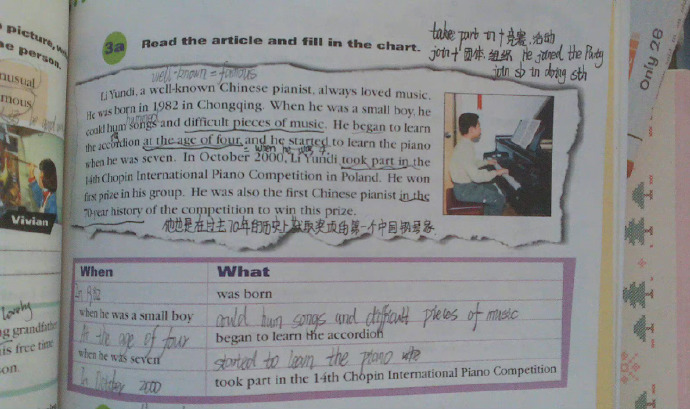 picture,
e person.
nusual
mous
Vivian
lovely
ng grandfather
is free time
son.
3a Read the article and fill in the chart.
take part in + 竞赛,活动
join + 团体.组织 he joined the Party
join sb in doing sth
Only 28
well-known = famous
Li Yundi, a well-known Chinese pianist, always loved music.
He was born in 1982 in Chongqing. When he was a small boy, he
hummed
could hum songs and difficult pieces of music. He began to learn
the accordion at the age of four, and he started to learn the piano
= when he was 4
when he was seven. In October 2000, Li Yundi took part in the
14th Chopin International Piano Competition in Poland. He won
first prize in his group. He was also the first Chinese pianist in the
70-year history of the competition to win this prize.
他也是在过去70年的历史上获取奖项的第一个中国钢琴家.
When What
In 1982 was born
when he was a small boy could hum songs and difficult pieces of music
At the age of four began to learn the accordion
when he was seven started to learn the piano
In October 2000 took part in the 14th Chopin International Piano Competition